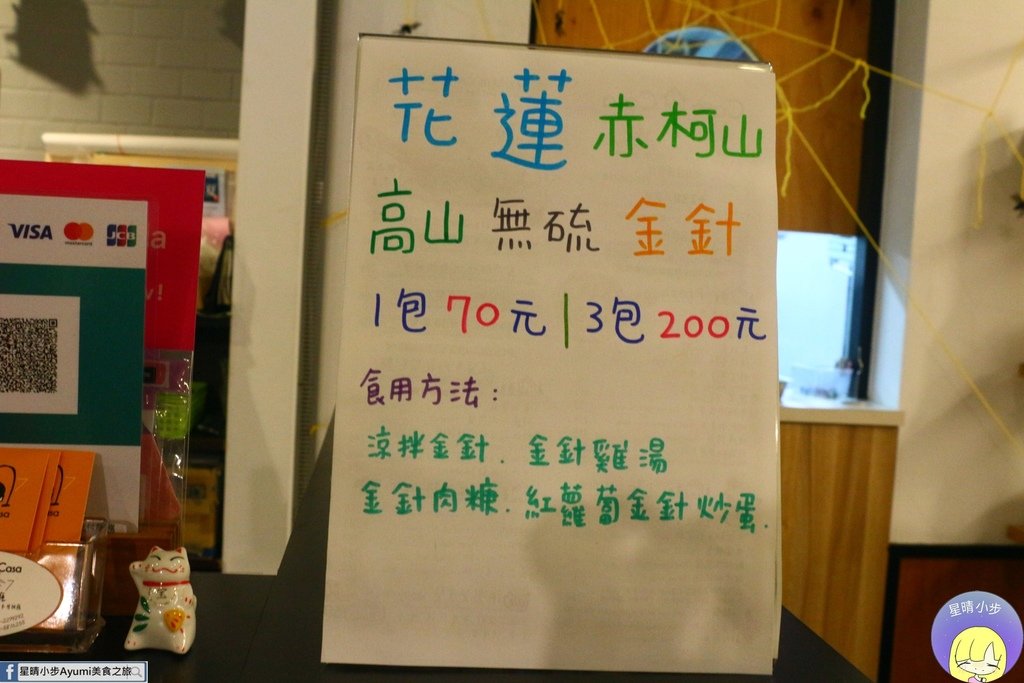 花蓮赤柯山
高山無硫金針
1包70元|3包200元
食用方法：
涼拌金針.金針雞湯
金針肉糠.紅蘿蔔金針炒蛋.
VISA mastercard JCB
Casa
星晴小步Ayumi美食之旅
星晴小步